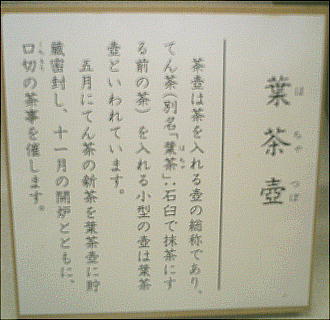 葉茶壺
はちゃつぼ
茶壺は茶を入れる壺の総称であり、
てん茶(別名「葉茶」:石臼で抹茶にす
はちゃ
る前の茶)を入れる小型の壺は葉茶
壺といわれています。
五月にてん茶の新茶を葉茶壺に貯
蔵密封し、十一月の開炉とともに、
口切の茶事を催します。
くちきり